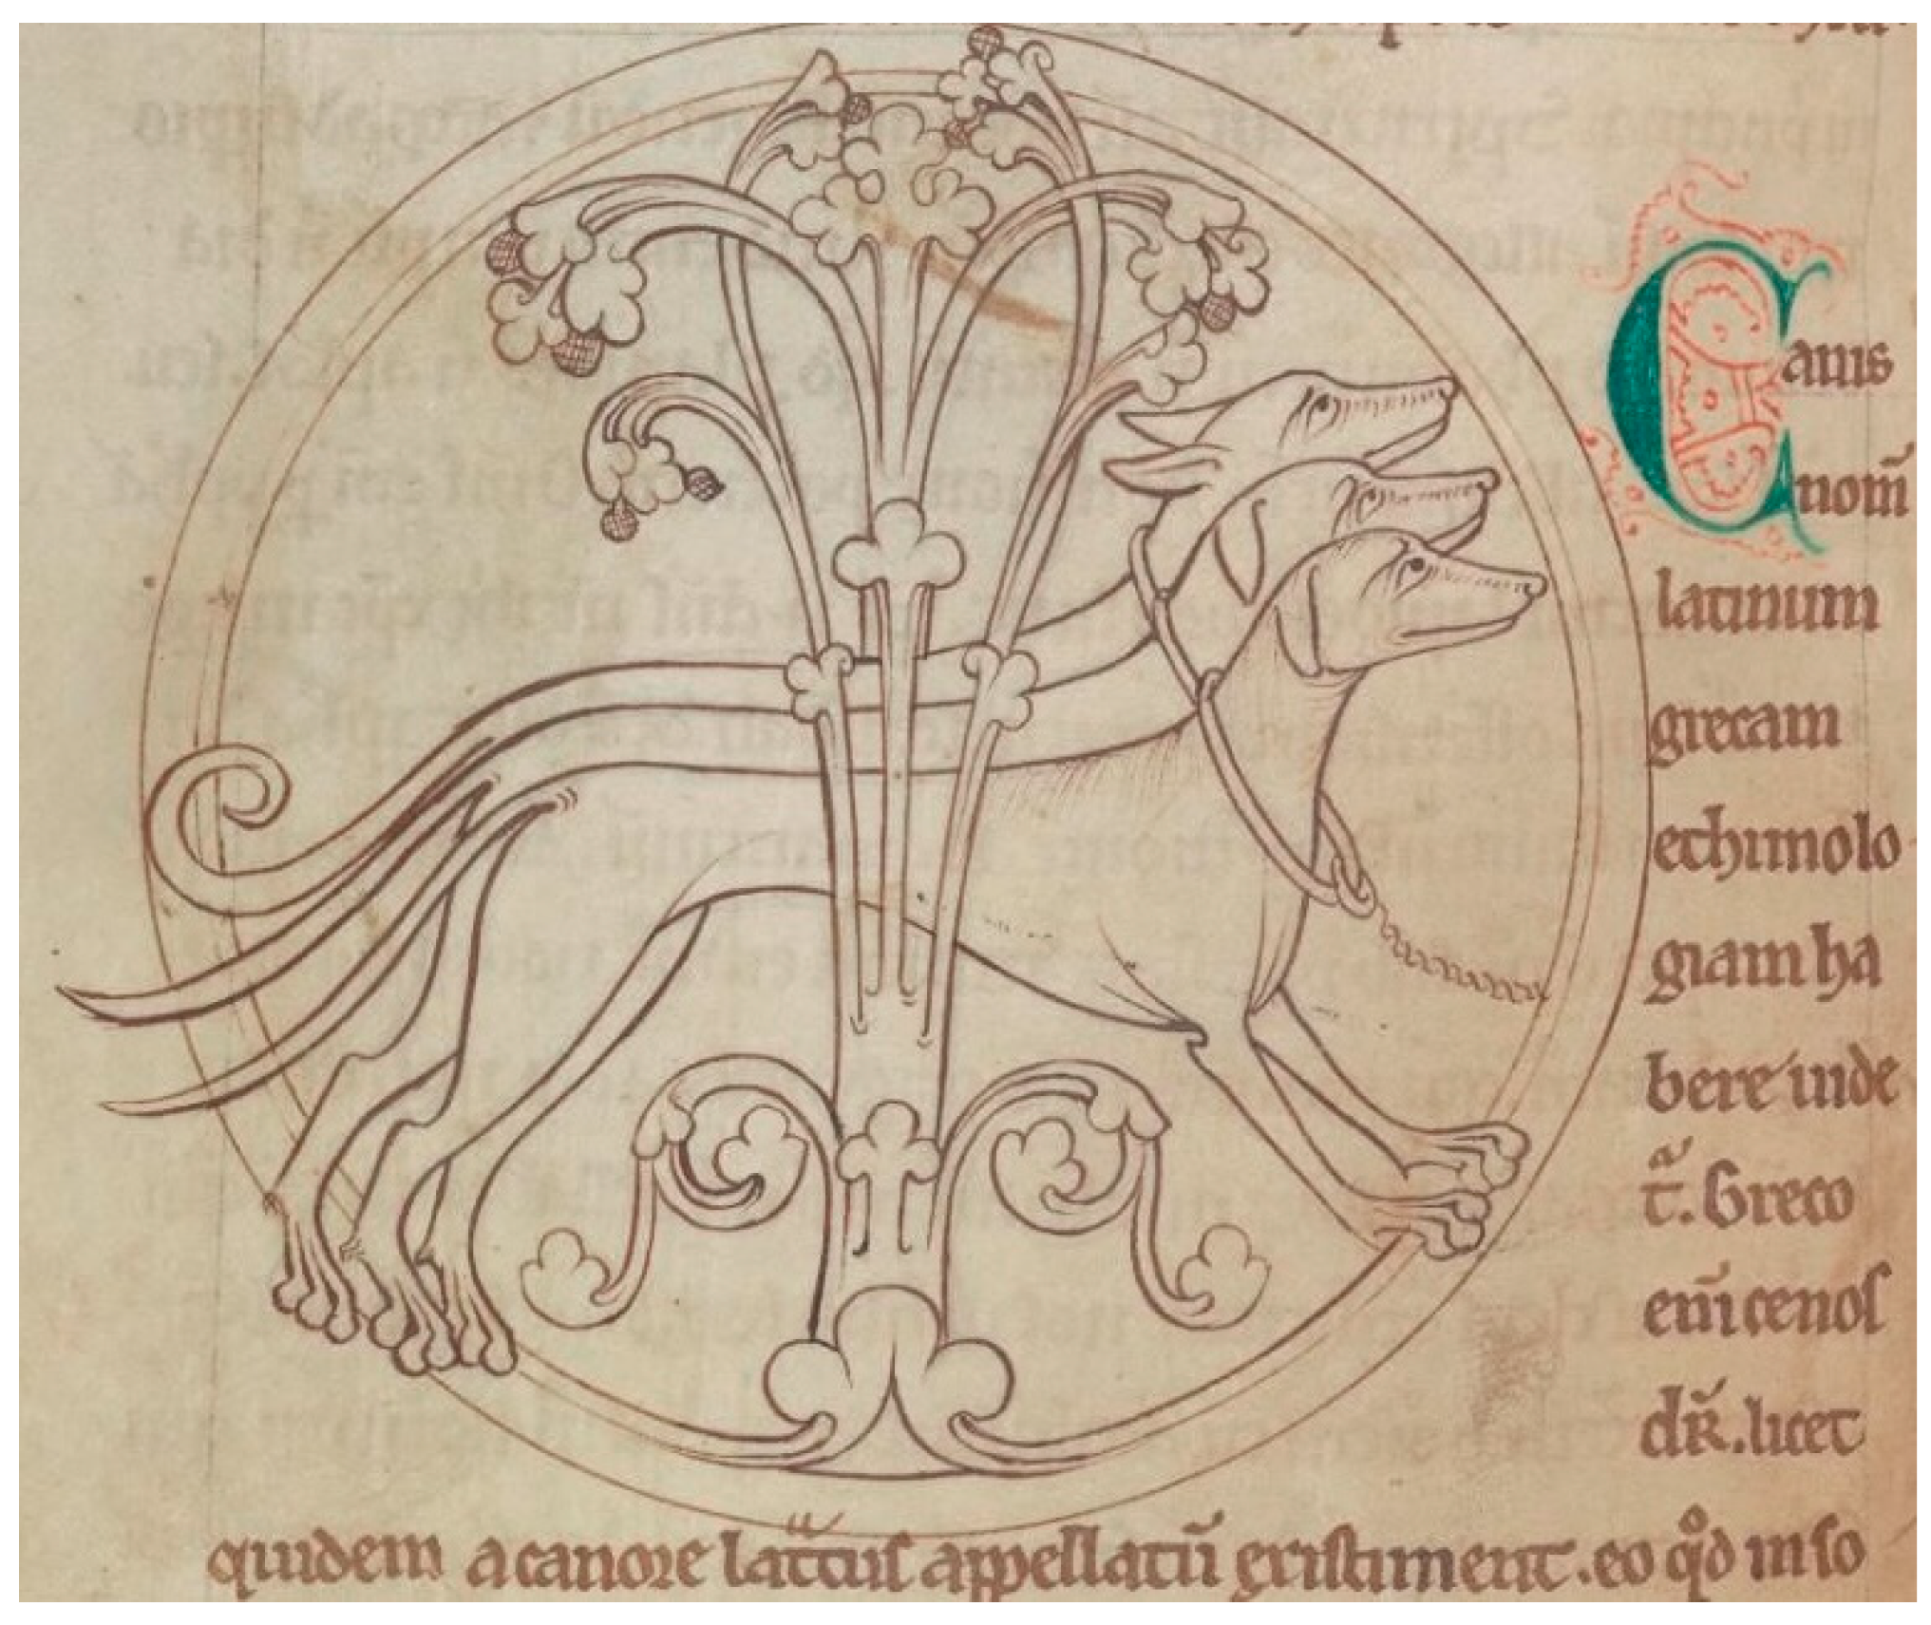 Canis
nom̄
latinum
grecam
ethimolo
giam ha
bere uide
tᵃ. Greco
em̄ cenos
dr̄. licet
quidem a canore latratus appellatū existiment. eo qͦd in so